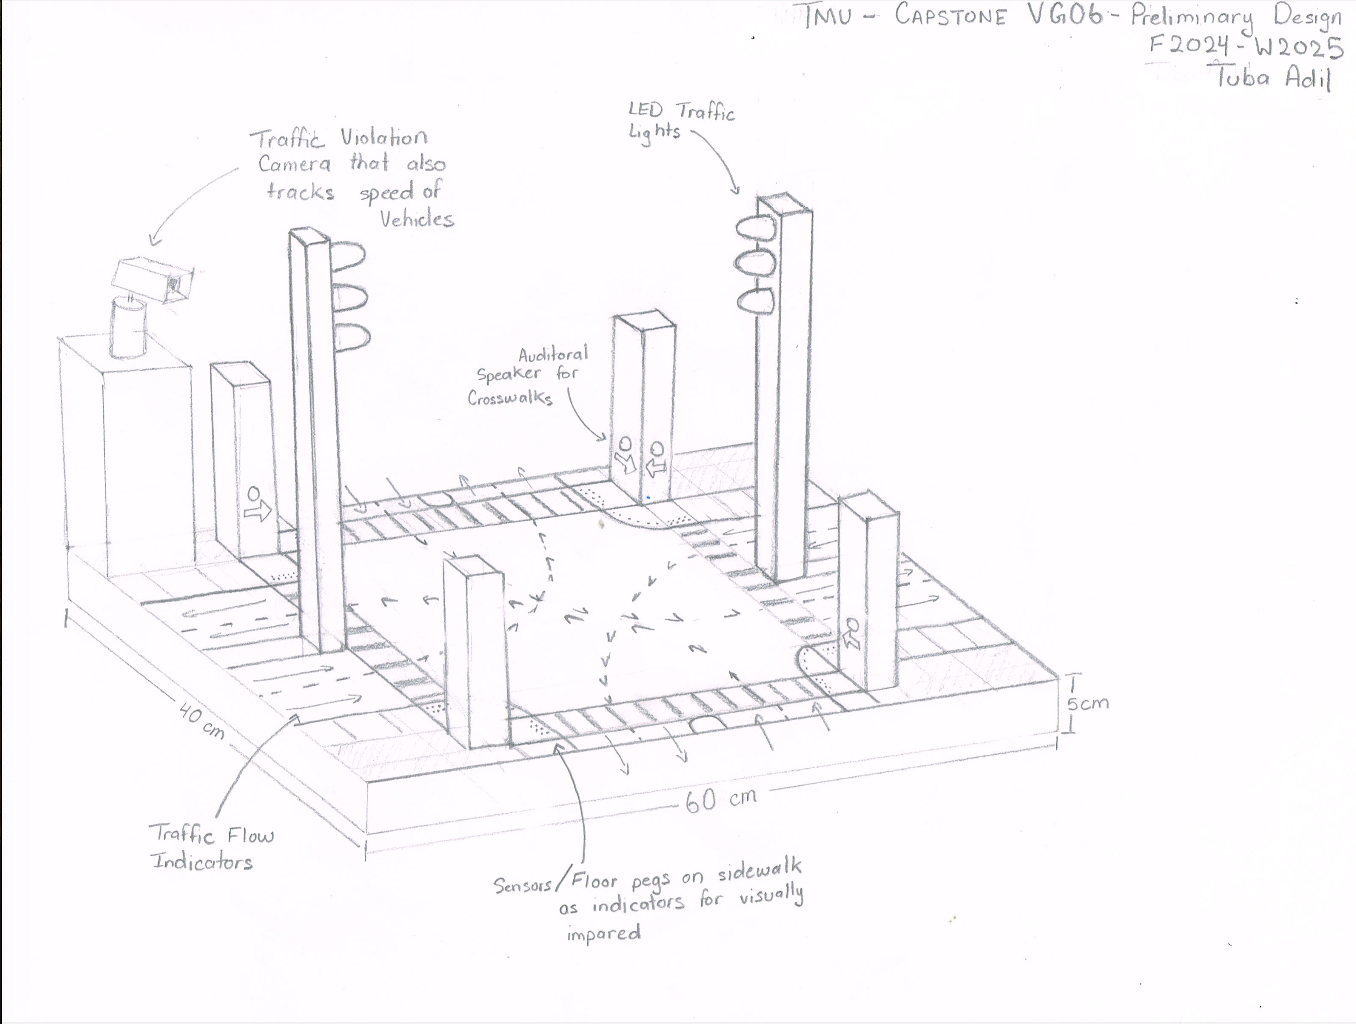 TMU - CAPSTONE VG06 - Preliminary Design
F2024 - W2025
Tuba Adil
LED Traffic
Lights
Traffic Violation
Camera that also
tracks speed of
Vehicles
Auditoral
Speaker for
Crosswalks
40 cm
5cm
60 cm
Traffic Flow
Indicators
Sensors/Floor pegs on sidewalk
as indicators for visually
impared